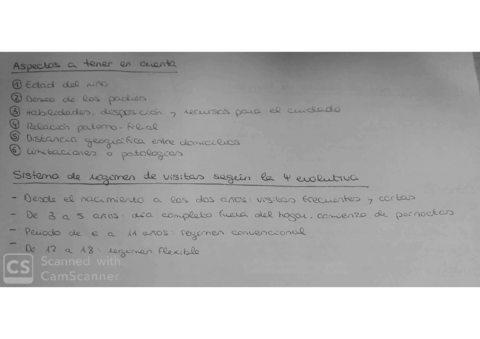 Aspectos a tener en cuenta
① Edad del niño
② Deseo de los padres
③ Habilidades, disposición y recursos para el cuidado
④ Relación paterno-filial
⑤ Distancia geográfica entre domicilios
⑥ Limitaciones o patologías
Sistema de régimen de visitas según la Ψ evolutiva
- Desde el nacimiento a los dos años: visitas frecuentes y cortas
- De 3 a 5 años: día completo fuera del hogar, comienzo de pernoctas
- Periodo de 6 a 11 años: régimen convencional
- De 12 a 18: régimen flexible
CS Scanned with
CamScanner